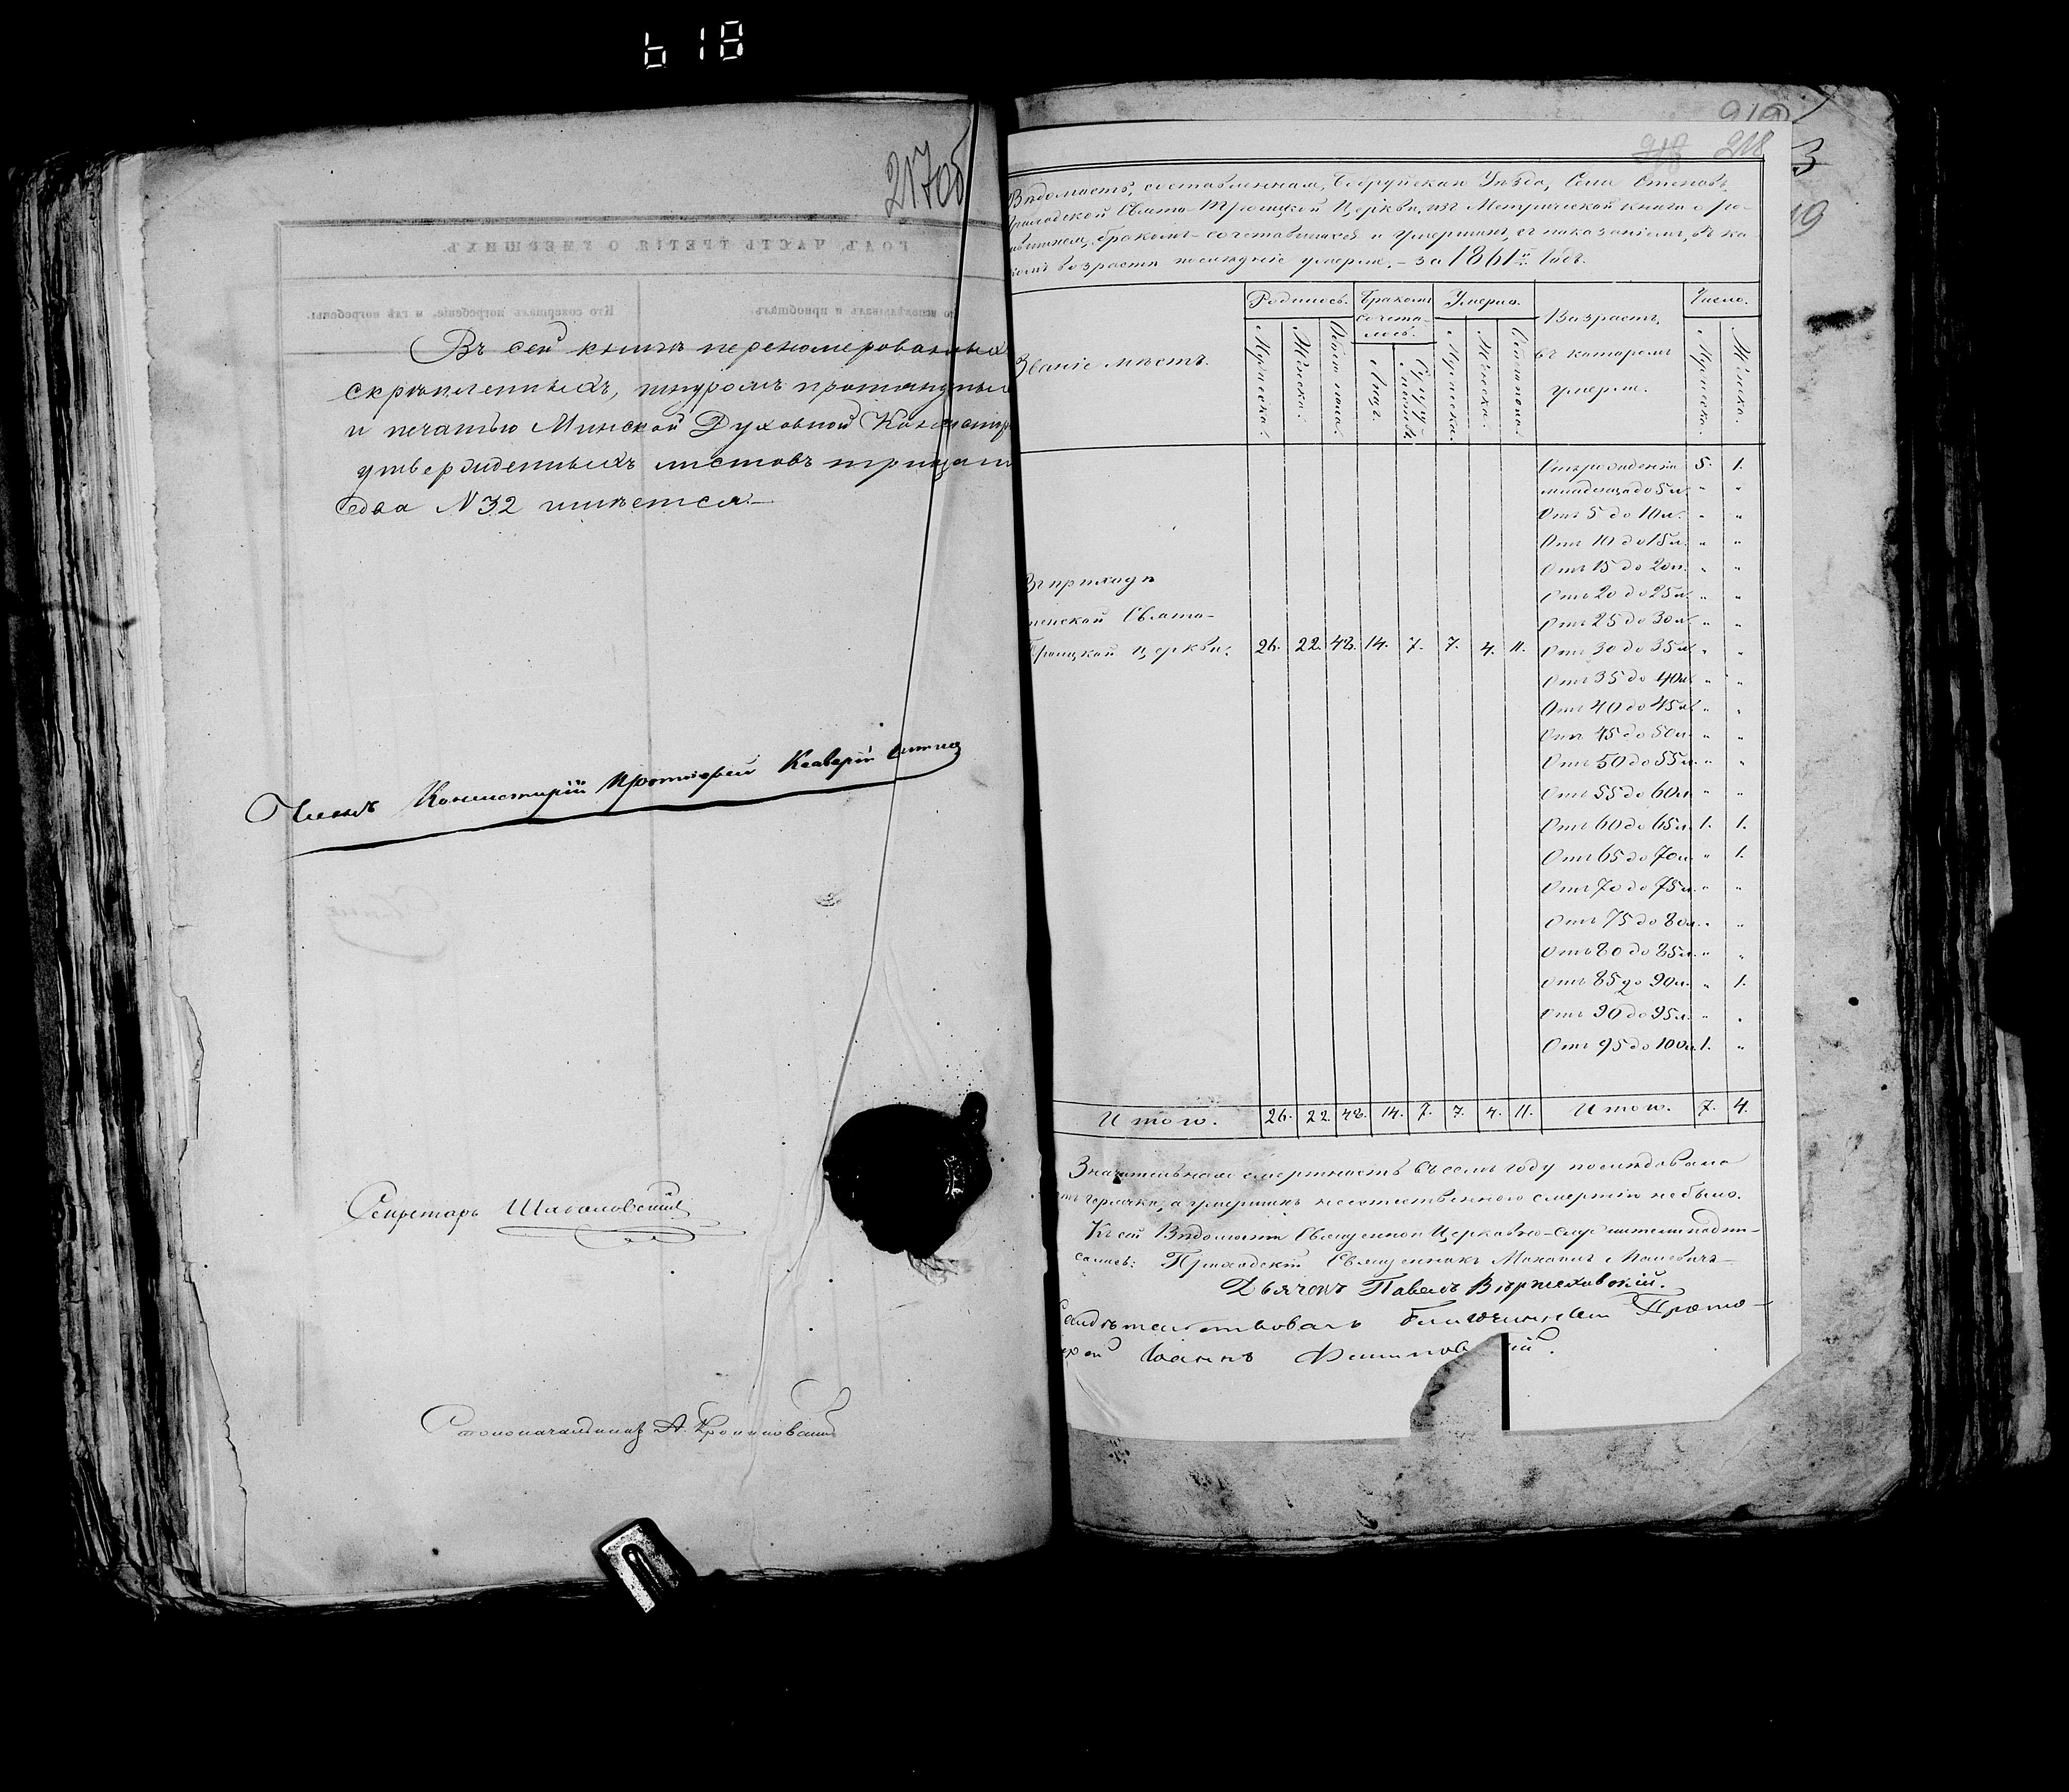 618
217об
Въ сей книгѣ перенумерованныхъ
скрѣпленныхъ, шнуромъ протянутыхъ
и печатью Минской Духовной Консистор
утвержденныхъ листовъ тридцать
два N 32 имѣется.—
Членъ Консисторіи Протоіерей
Секретарь
Столоначальникъ А.
219
218 218
Вѣдомость, составленная, Бобруйскаго Уѣзда, Села
Приходской Свято-Троицкой Церкви, изъ Метрической книги о ро-
бракомъ-сочетавшихся и умершихъ, съ показаніемъ, въ ка-
комъ возрастѣ послѣдніе умерли.— за 1861й Годъ.
Званіе мѣстъ.
Родилось.
Бракомъ сочета-лось.
Умерло.
Возрастъ, въ которомъ умерли.
Число.
Мужеска. Женска. Обоего пола. Лицъ. Супружествъ. Мужеска. Женска. Обоего пола. Мужеска. Женска.
Отъ рожденія 5. 1.
младенца до 5 л. " "
Отъ 5 до 10 л. " "
Отъ 10 до 15 л. " "
Отъ 15 до 20 л. " "
Отъ 20 до 25 л. " "
Отъ 25 до 30 л. " "
Въ приходѣ
Свято-
Троицкой Церкви. 26. 22. 48. 14. 7. 7. 4. 11. Отъ 30 до 35 л. " "
Отъ 35 до 40 л. " "
Отъ 40 до 45 л. " "
Отъ 45 до 50 л. " "
Отъ 50 до 55 л. " "
Отъ 55 до 60 л. " "
Отъ 60 до 65 л. 1. 1.
Отъ 65 до 70 л. " 1.
Отъ 70 до 75 л. " "
Отъ 75 до 80 л. " "
Отъ 80 до 85 л. " "
Отъ 85 до 90 л. " 1.
Отъ 90 до 95 л. " "
Отъ 95 до 100 л. 1. "
Итого. 26. 22. 48. 14. 7. 7. 4. 11. Итого. 7. 4.
Значительная смертность въ семъ году послѣдовала
отъ горячки, а умершихъ неестественною смертію не было.
Къ сей Вѣдомости Священной Церковно-служители подпи-
сались: Приходскій Священникъ Михаилъ
Дьячекъ Павелъ Вержеховскій.
Свидѣтельствовалъ Благочинный Прото-
ерей Іоаннъ